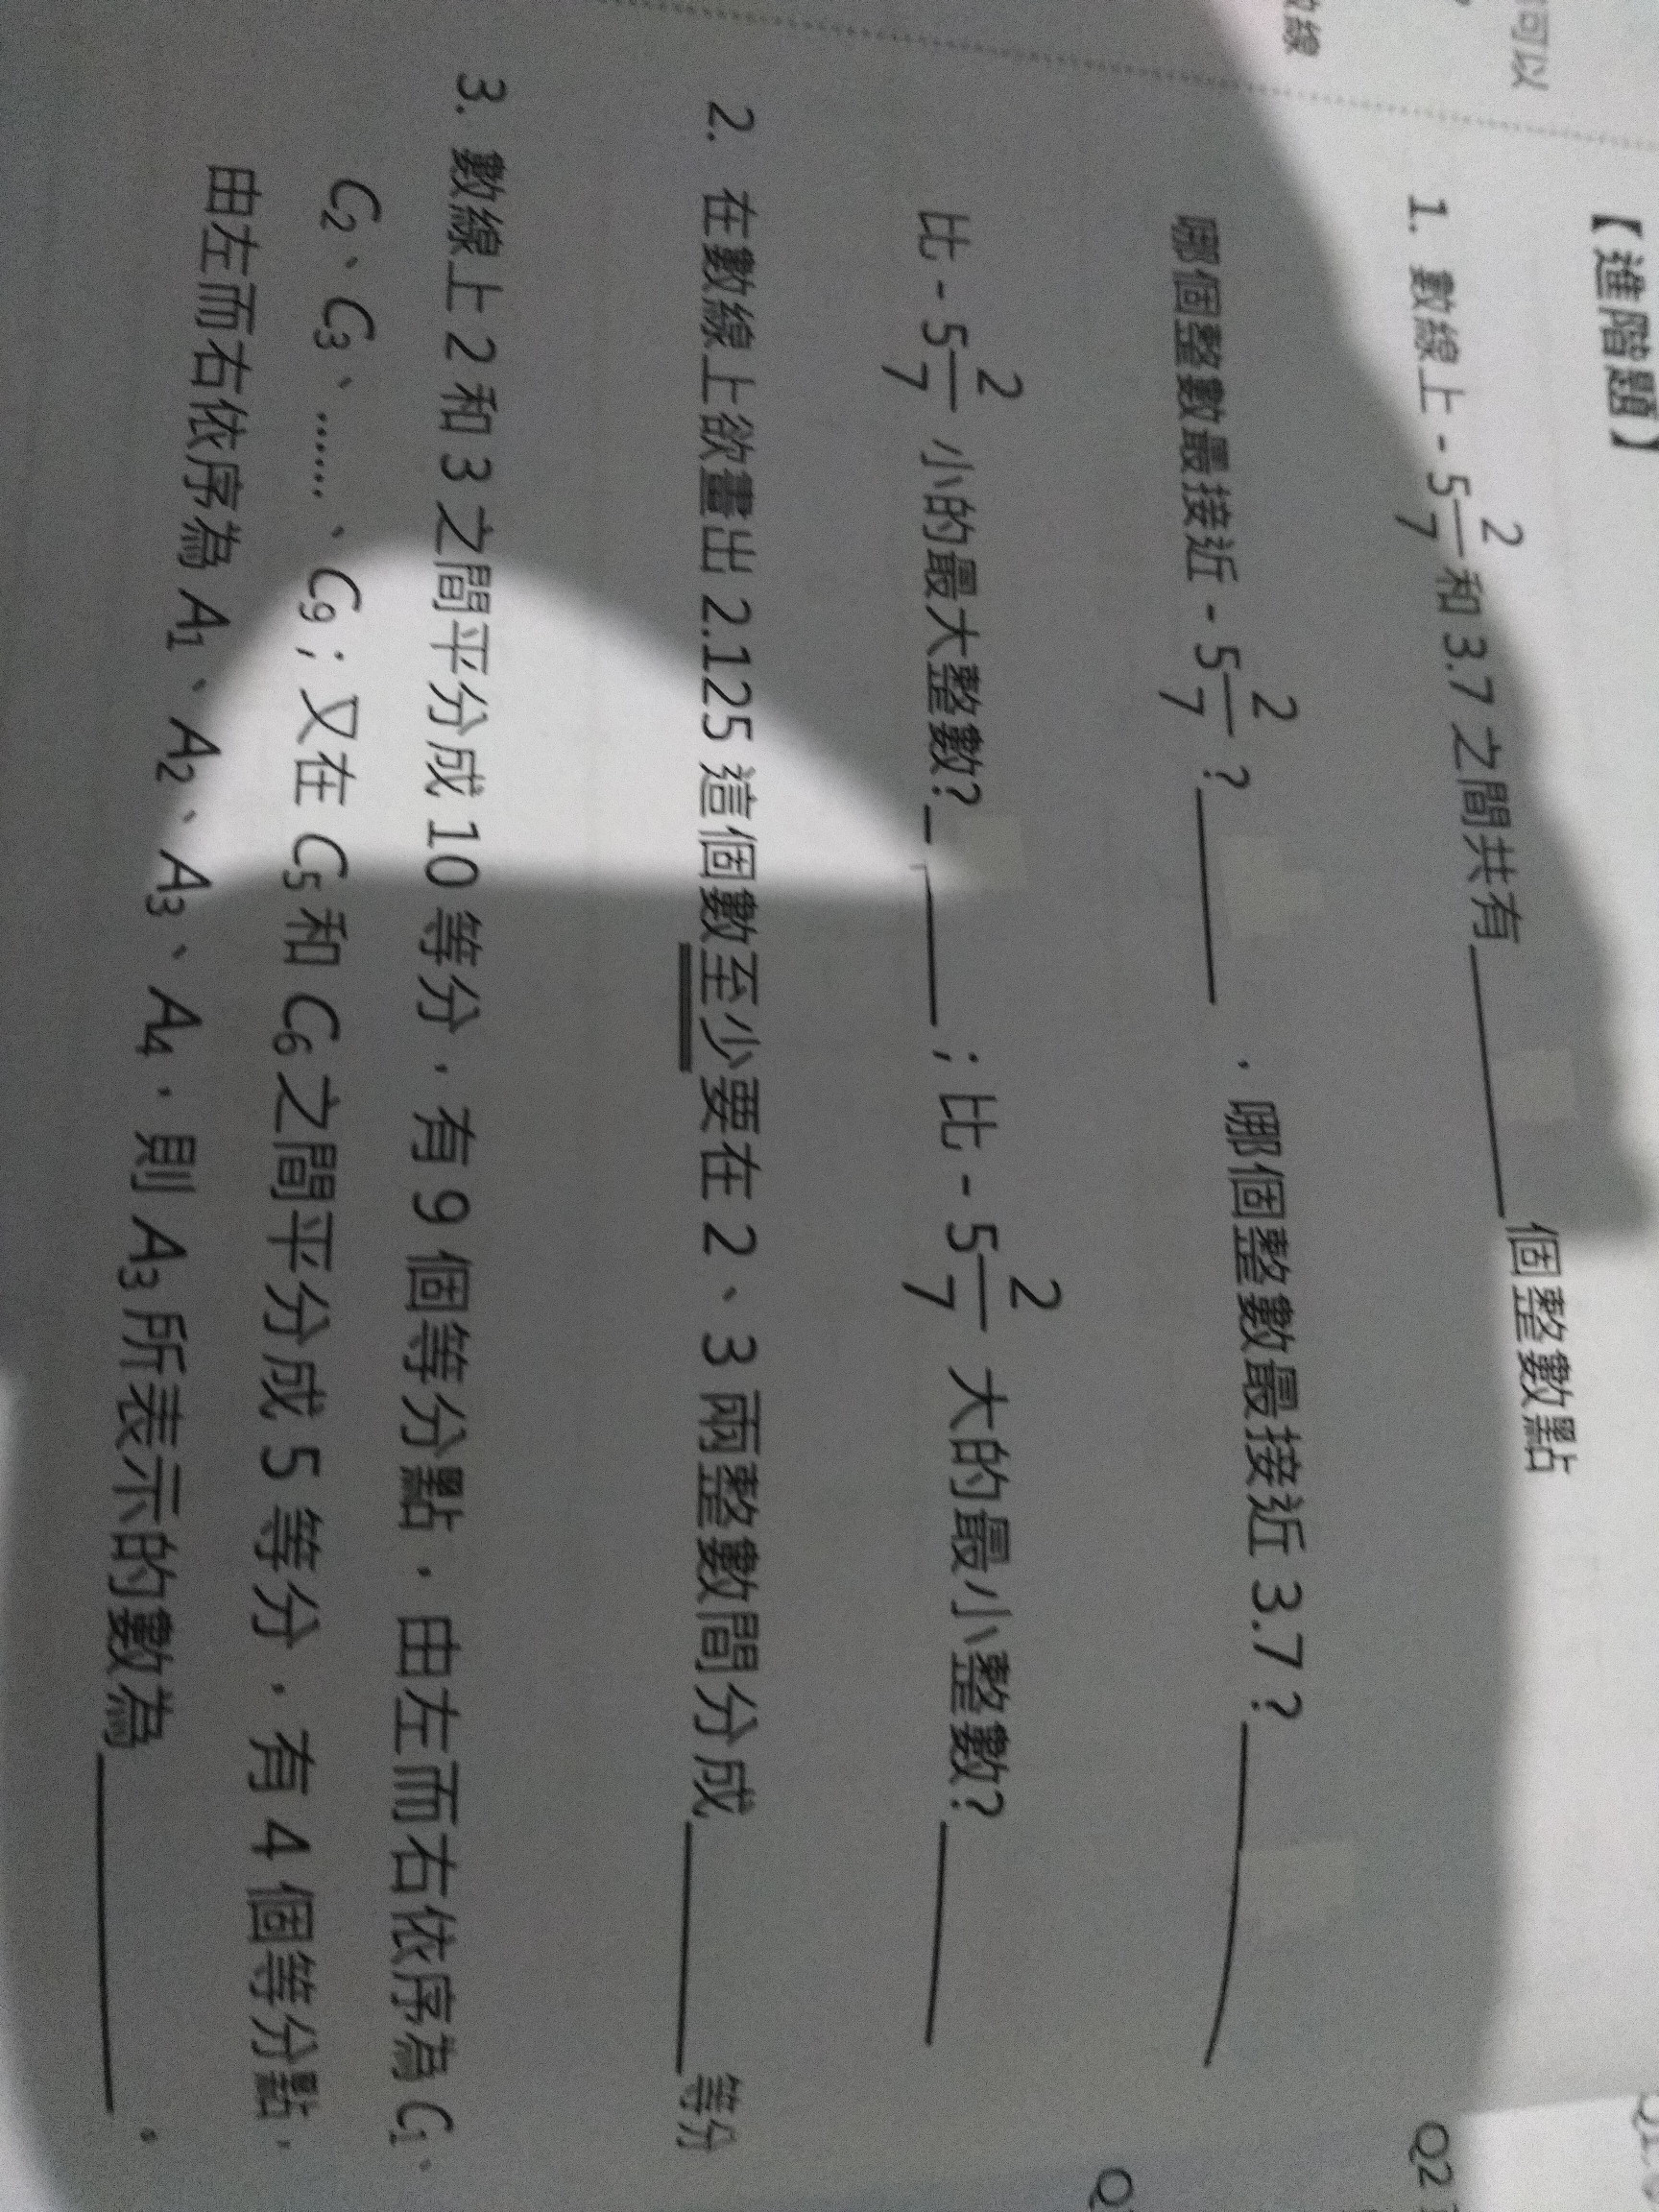 可以
數線
【進階題】
1. 數線上 - 5 2/7 和 3.7 之間共有________個整數點
哪個整數最接近 - 5 2/7 ?________,哪個整數最接近 3.7 ?________
比 - 5 2/7 小的最大整數?________;比 - 5 2/7 大的最小整數?________
2. 在數線上欲畫出 2.125 這個數至少要在 2、3 兩整數間分成________等分
3. 數線上 2 和 3 之間平分成 10 等分,有 9 個等分點,由左而右依序為 C₁、
C₂、C₃、……、C₉;又在 C₅ 和 C₆ 之間平分成 5 等分,有 4 個等分點,
由左而右依序為 A₁、A₂、A₃、A₄,則 A₃ 所表示的數為________。
Q2